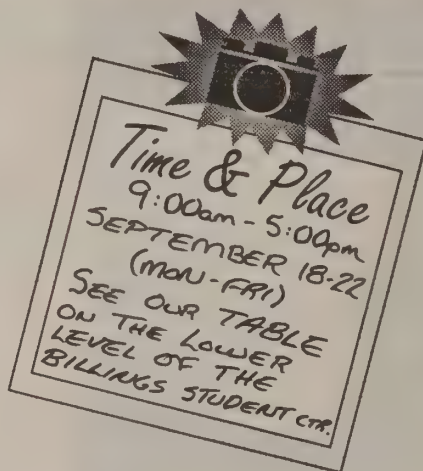 Time & Place
9:00am - 5:00pm
SEPTEMBER 18-22
(MON-FRI)
SEE OUR TABLE
ON THE LOWER
LEVEL OF THE
BILLINGS STUDENT CTR.